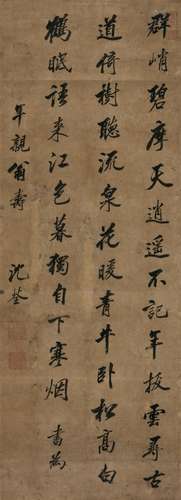 群峭碧摩天逍遥不記年撥雲尋古
道倚樹聽流泉花暖青牛卧松高白
鶴眠語来江色暮獨自下寒烟 書為
年親翁壽 沈荃